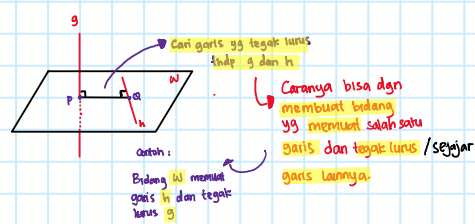 g
Cari garis yg tegak lurus
thdp g dan h
W
P
Q
h
Caranya bisa dgn
membuat bidang
yg memuat salah satu
garis dan tegak lurus/sejajar
garis lainnya.
Contoh :
Bidang W memuat
garis h dan tegak
lurus g